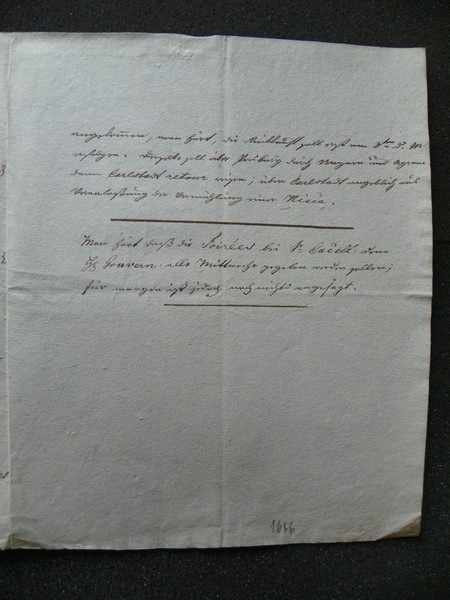 angekommen, man hört, die Rückkunft soll erst am 3ten d. M.
erfolgen. soll über durch Ungarn und Agram
dann Carlstadt retour; über Carlstadt angeblich aus
Veranlaßung der Vermählung einer Niece.
Man hört daß die Soirées bei Sr. dem
Gouvern. alle Mittwoche gegeben werden sollen;
für morgen ist jedoch noch nichts angesagt.
1646